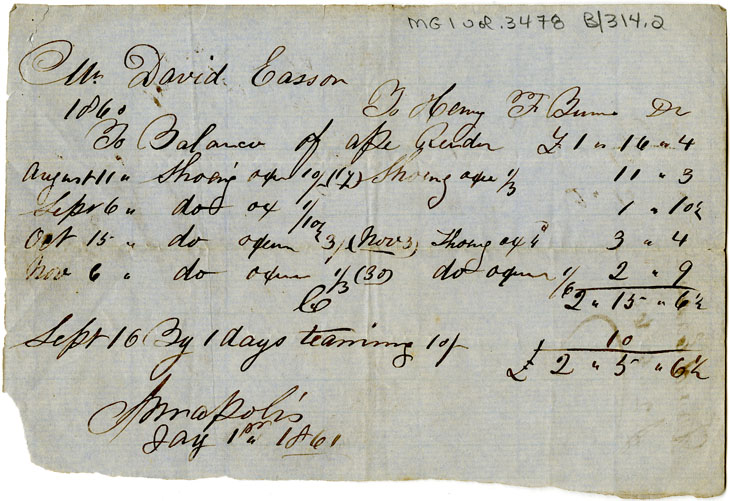 MG 1 Vol. 3478 B/314.2
Mr David Easson
1860 To Henry F Dr
To Balance of aple Grinder £1 " 16 " 4
August 11 " Shoeing oxen 10/ (17) Shoeing oxe 1/3 11 " 3
Sept 6 " do ox 1/10½ 1 " 10½
Oct 15 " do oxen 3/ (Nov 3) Shoing ox 4d 3 " 4
Nov 6 " do oxen 1/3 (30) do oxen 1/6 2 " 9
Cr 2 " 15 " 6½
Sept 16 By 1 days teaming 10/ 10
£ 2 " 5 " 6½
Annapolis
Jay 1st " 1861